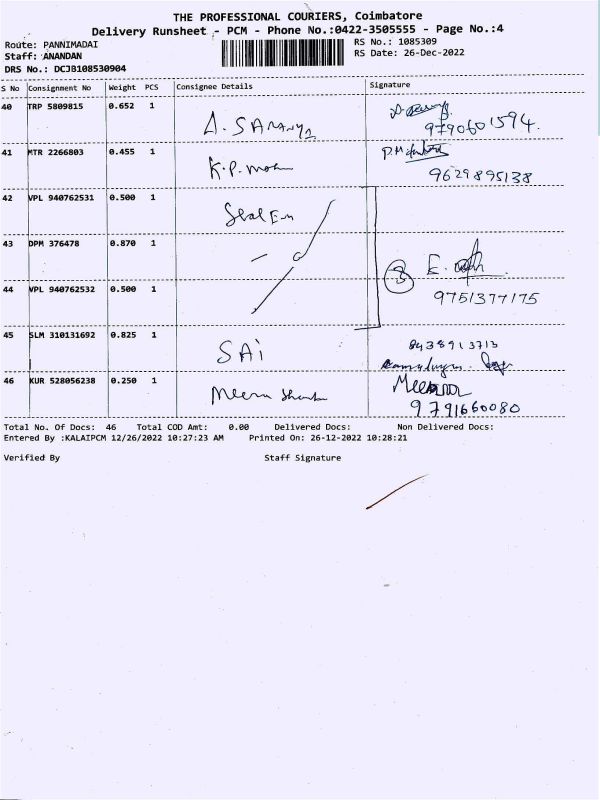 THE PROFESSIONAL COURIERS, Coimbatore
Delivery Runsheet - PCM - Phone No.:0422-3505555 - Page No.:4
Route: PANNIMADAI
RS No.: 1085309
Staff: ANANDAN
RS Date: 26-Dec-2022
DRS No.: DCJB108530904
S No Consignment No Weight PCS Consignee Details Signature
40 TRP 5809815 0.652 1
A. SARANYA
9790601594.
41 MTR 2266803 0.455 1
K.P. Mohn
9629895138
42 VPL 940762531 0.500 1
Stal Em
43 DPM 376478 0.870 1
3 E.
44 VPL 940762532 0.500 1
9751377175
45 SLM 310131692 0.825 1
SAi
8438913713
46 KUR 528056238 0.250 1
Meera
9791660080
Total No. Of Docs: 46 Total COD Amt: 0.00 Delivered Docs: Non Delivered Docs:
Entered By :KALAIPCM 12/26/2022 10:27:23 AM Printed On: 26-12-2022 10:28:21
Verified By Staff Signature